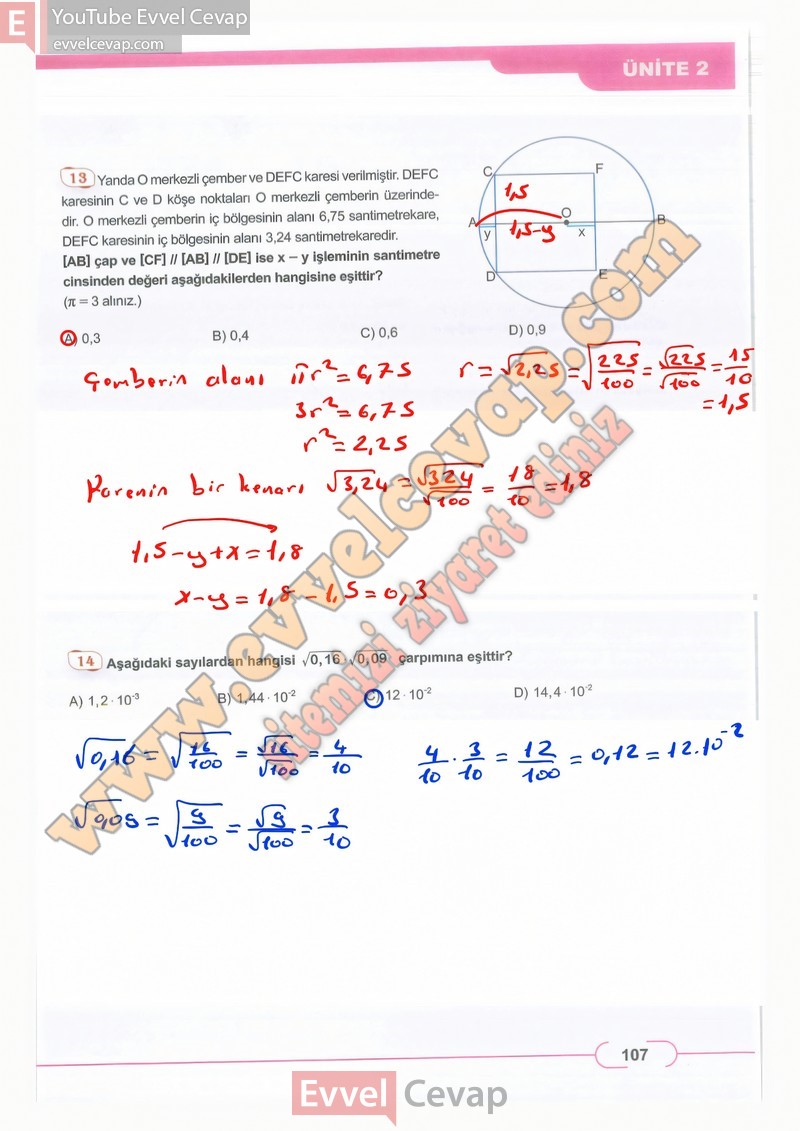 E
YouTube Evvel Cevap
evvelcevap.com
ÜNİTE 2
13 Yanda O merkezli çember ve DEFC karesi verilmiştir. DEFC
karesinin C ve D köşe noktaları O merkezli çemberin üzerinde-
dir. O merkezli çemberin iç bölgesinin alanı 6,75 santimetrekare,
DEFC karesinin iç bölgesinin alanı 3,24 santimetrekaredir.
[AB] çap ve [CF] // [AB] // [DE] ise x – y işleminin santimetre
cinsinden değeri aşağıdakilerden hangisine eşittir?
(π = 3 alınız.)
C F
1,5
A O B
y 1,5-y x
D E
A) 0,3 B) 0,4 C) 0,6 D) 0,9
Çemberin alanı πr² = 6,75 r = √2,25 = √(225/100) = √225/√100 = 15/10
3r² = 6,75 = 1,5
r² = 2,25
Karenin bir kenarı √3,24 = √324/√100 = 18/10 = 1,8
1,5-y+x = 1,8
x-y = 1,8 - 1,5 = 0,3
14 Aşağıdaki sayılardan hangisi √0,16 · √0,09 çarpımına eşittir?
A) 1,2 · 10⁻³ B) 1,44 · 10⁻² C) 12 · 10⁻² D) 14,4 · 10⁻²
√0,16 = √(16/100) = √16/√100 = 4/10 4/10 · 3/10 = 12/100 = 0,12 = 12.10⁻²
√0,09 = √(9/100) = √9/√100 = 3/10
www.evvelcevap.com
sitemizi ziyaret ediniz
107
Evvel Cevap